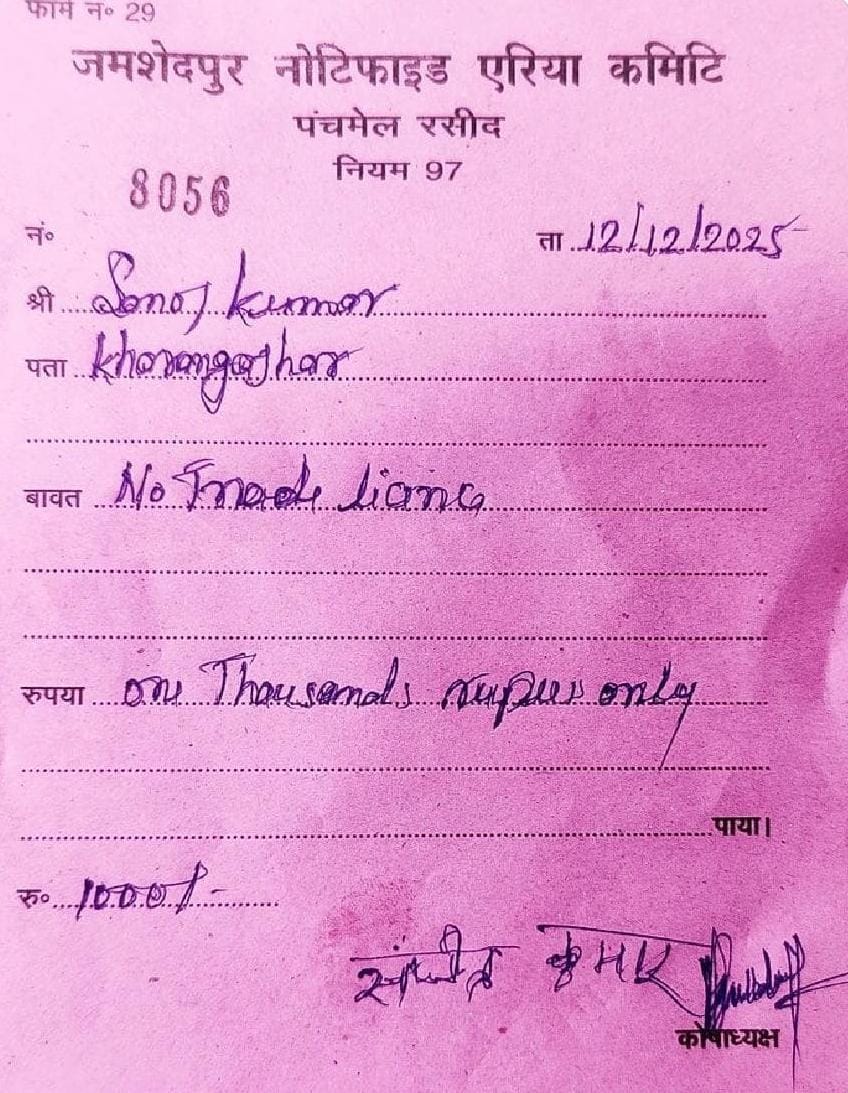 फार्म न० 29
जमशेदपुर नोटिफाइड एरिया कमिटि
पंचमेल रसीद
नियम 97
8056
नं० ता 12/12/2025
श्री Sonoj kumar
पता
बावत No Trade
रुपया one Thousands rupees only
पाया।
रु० 1000/-
कुमार
कोषाध्यक्ष